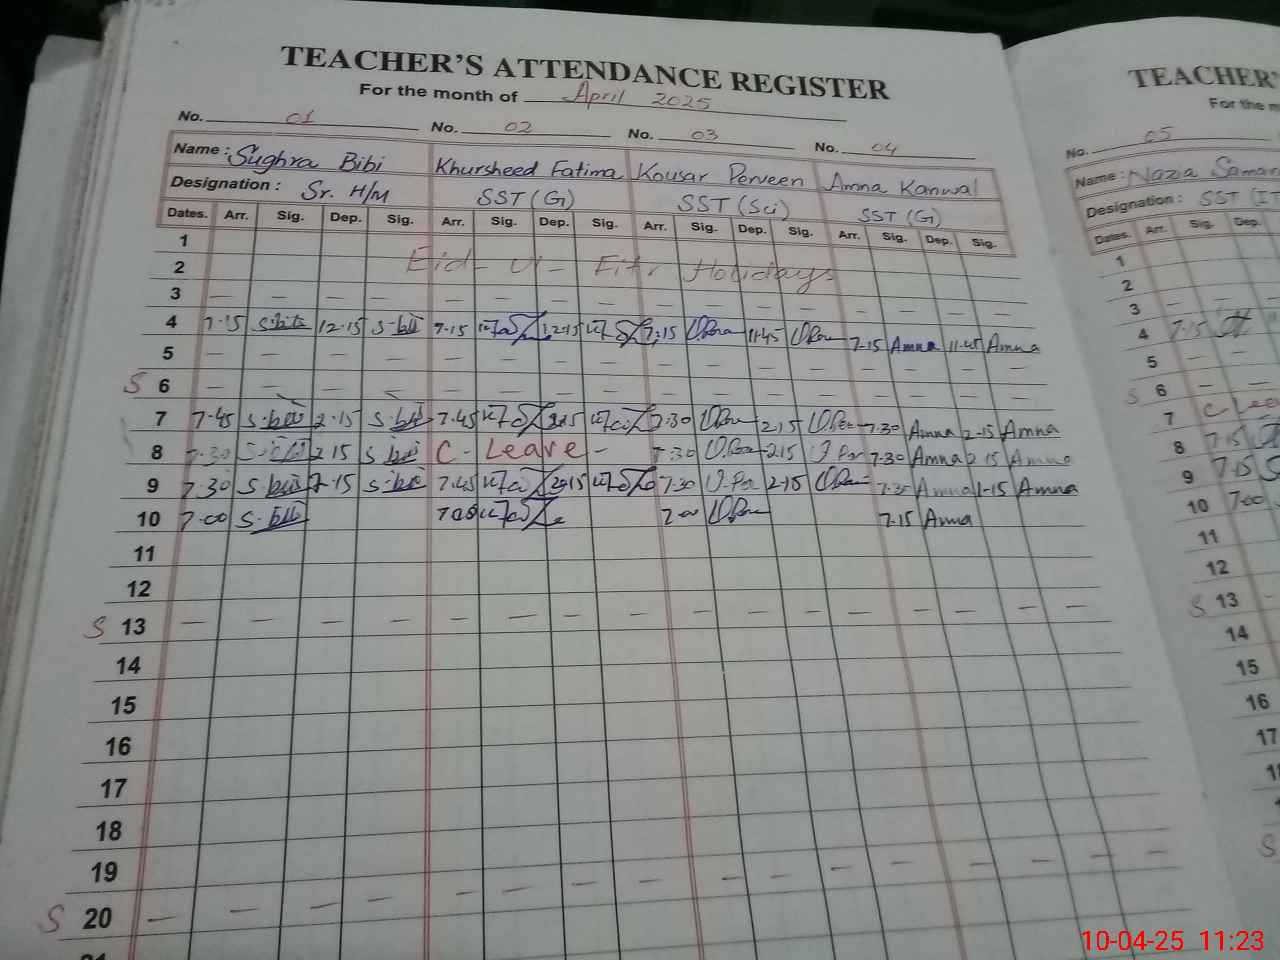 TEACHER'S ATTENDANCE REGISTER
For the month of April 2025
No. 01 No. 02 No. 03 No. 04
Name: Sughra Bibi Khursheed Fatima Kousar Perveen Amna Kanwal
Designation: Sr. H/M SST(G) SST(Sci) SST(G)
Dates. Arr. Sig. Dep. Sig. Arr. Sig. Dep. Sig. Arr. Sig. Dep. Sig. Arr. Sig. Dep. Sig.
1
2 Eid-U-Fitr Holidays
3 — — — — — — — — — — — — — — — —
4 7.15 S.bibi 12.15 S.bibi 7.15 12.15 7.15 11.45 7.15 Amna 11.45 Amna
5 — — — — — — — — — — — — — — — —
S 6 — — — — — — — — — — — — — — — —
7 7.45 S.bibi 2.15 S.bibi 7.45 2.15 7.30 2.15 7.30 Amna 2.15 Amna
8 7.30 S.bibi 2.15 S.bibi C-Leave- 7.30 2.15 7.30 Amna 2.15 Amna
9 7.30 S.bibi 15 S.bibi 7.45 2.15 7.30 2.15 7.30 Amna 1.15 Amna
10 7.00 S.bibi 7.00 7.00 7.15 Amna
11
12
S 13 — — — — — — — — — — — — — — — —
14
15
16
17
18
19
S 20 — — — — — — — — — — — — — — — —
TEACHER'
For the m
No. 05
Name: Nazia Saman
Designation: SST (IT
Dates. Arr. Sig. Dep.
1
2
3
4 7.15
5 — —
S 6 — —
7 C Lea
8 7.15
9 7.15
10 7.00
11
12
S 13 -
14
15
16
17
S
10-04-25 11:23